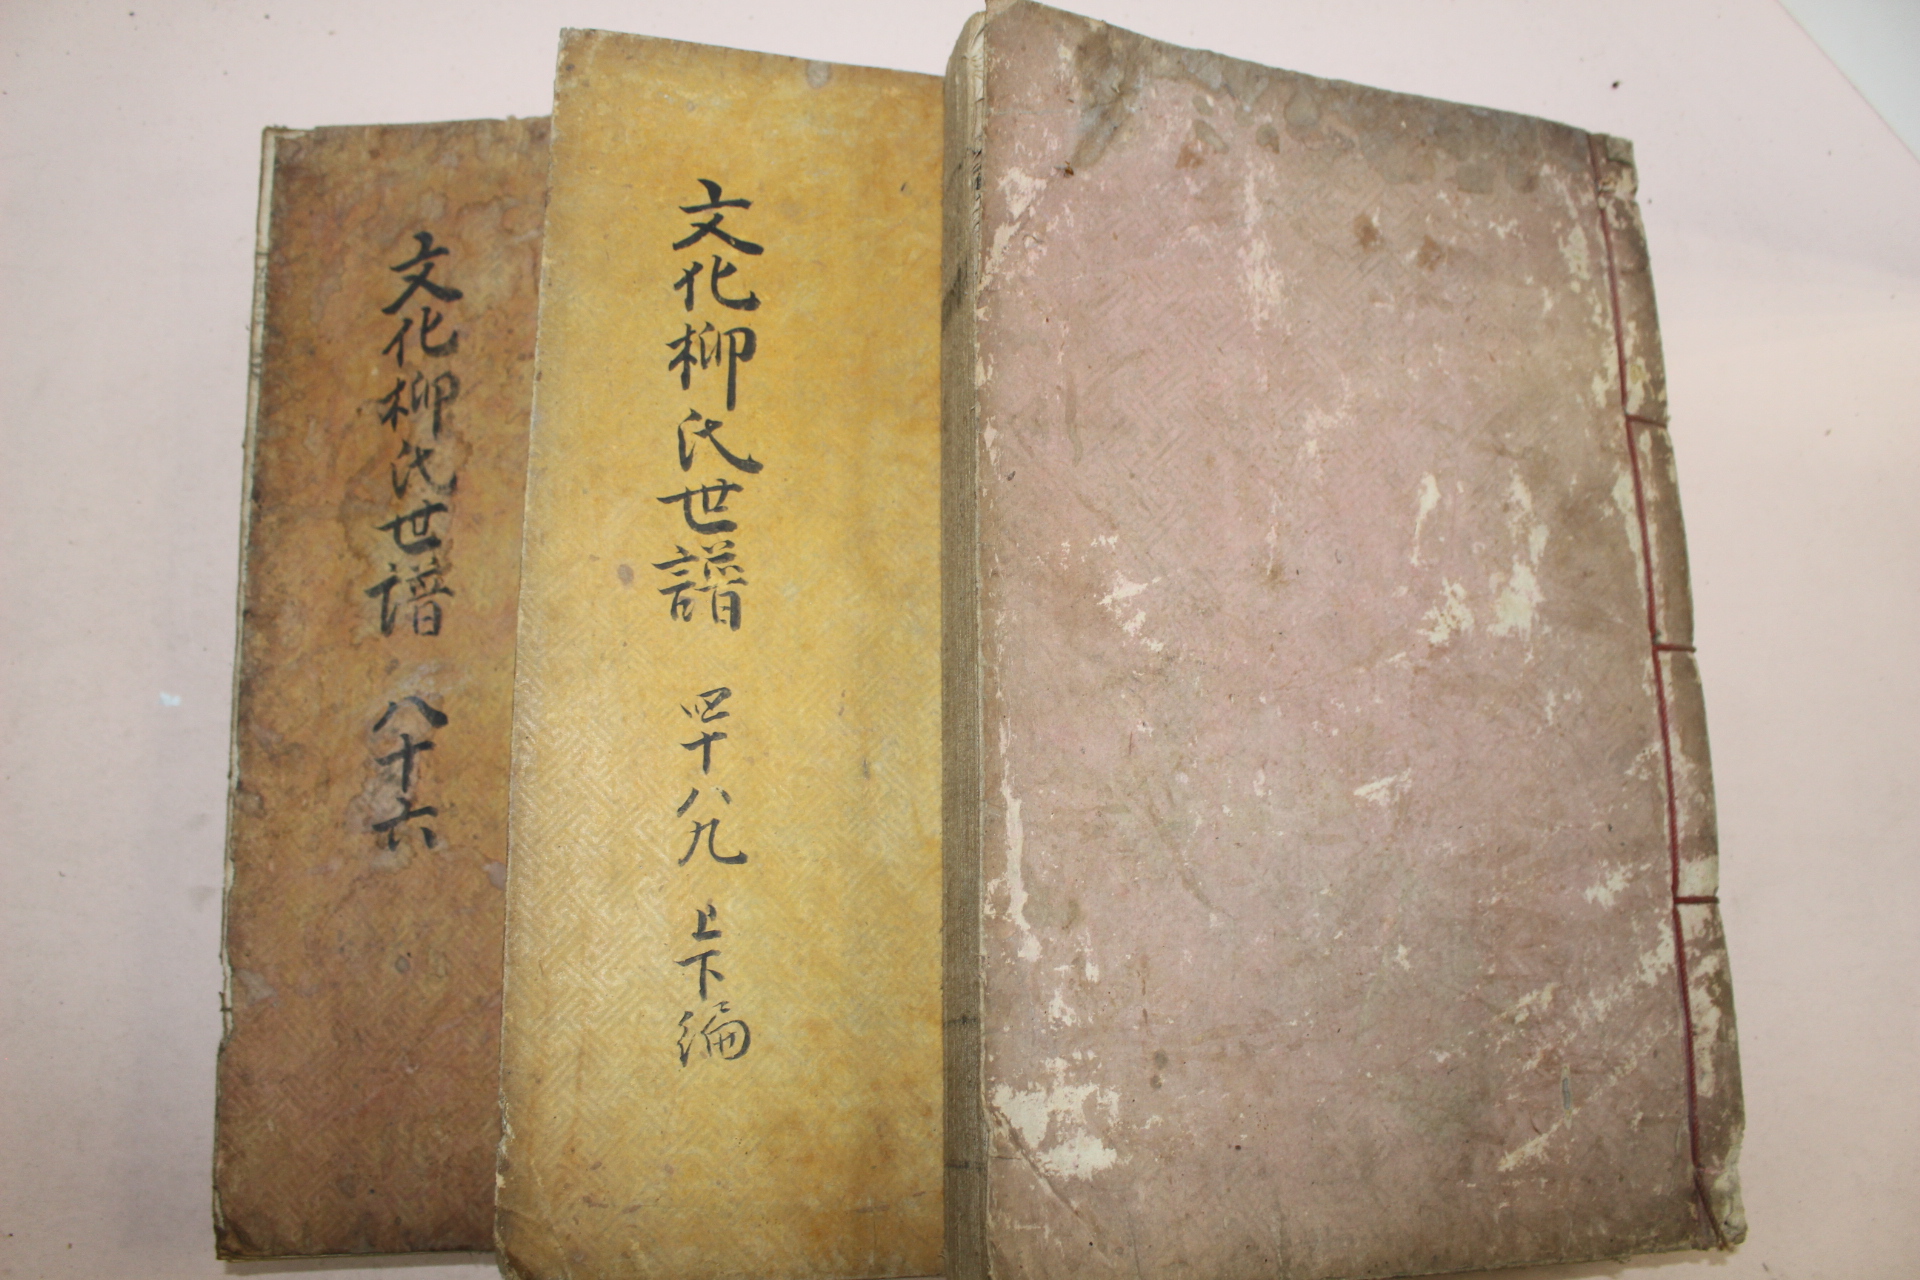 文化柳氏世譜 八十六
文化柳氏世譜 四十八九 上下編